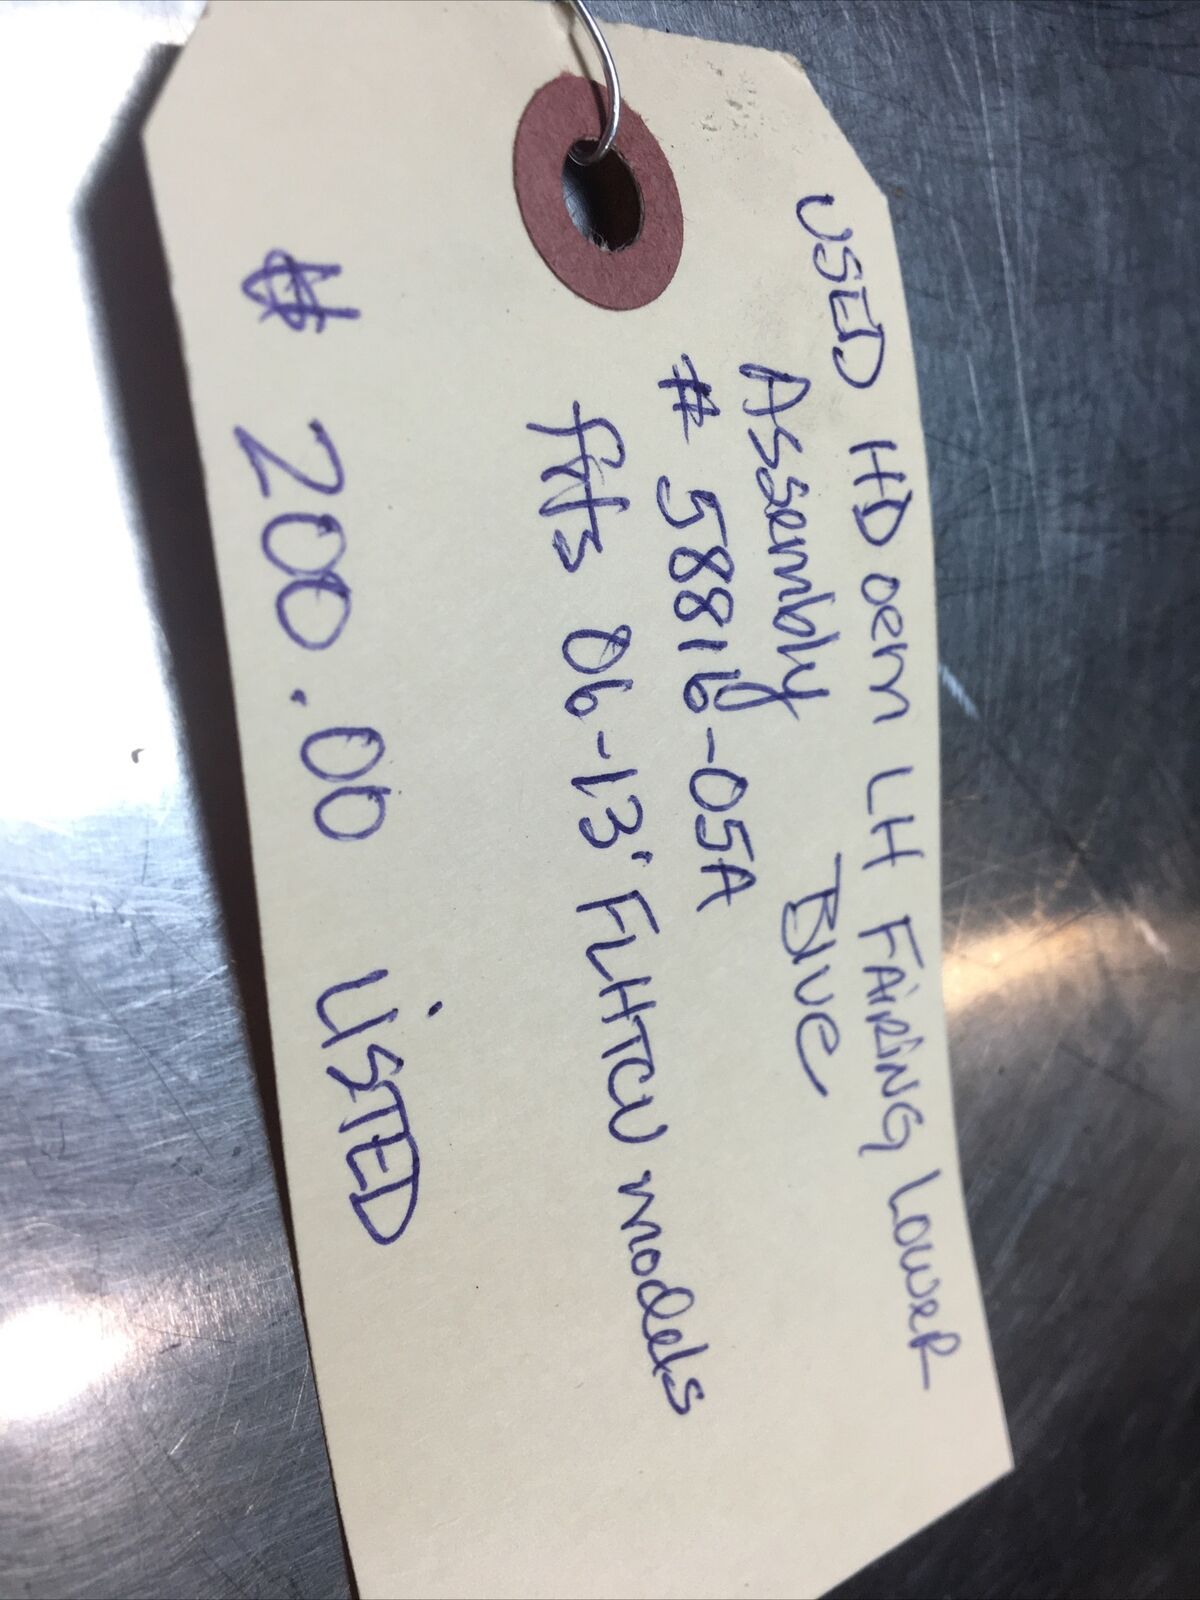 USED HD oem LH FAiRiNG LoweR
Assembly Blue
# 58816-05A
fits 06-13' FLHTCU models
$ 200.00 USTED